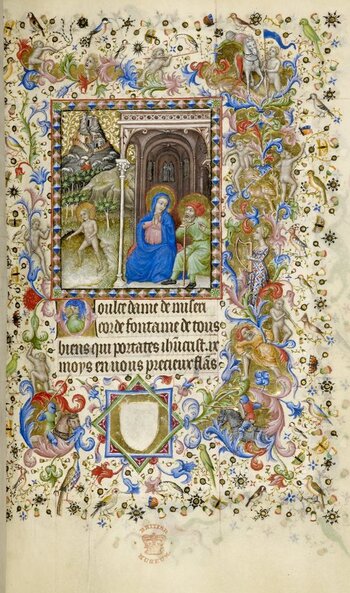 Doulce dame de miseri
corde fontaine de tous
biens qui portates ihūcrist ix
moys en vious precieux flās
BRITISH
MUSEUM